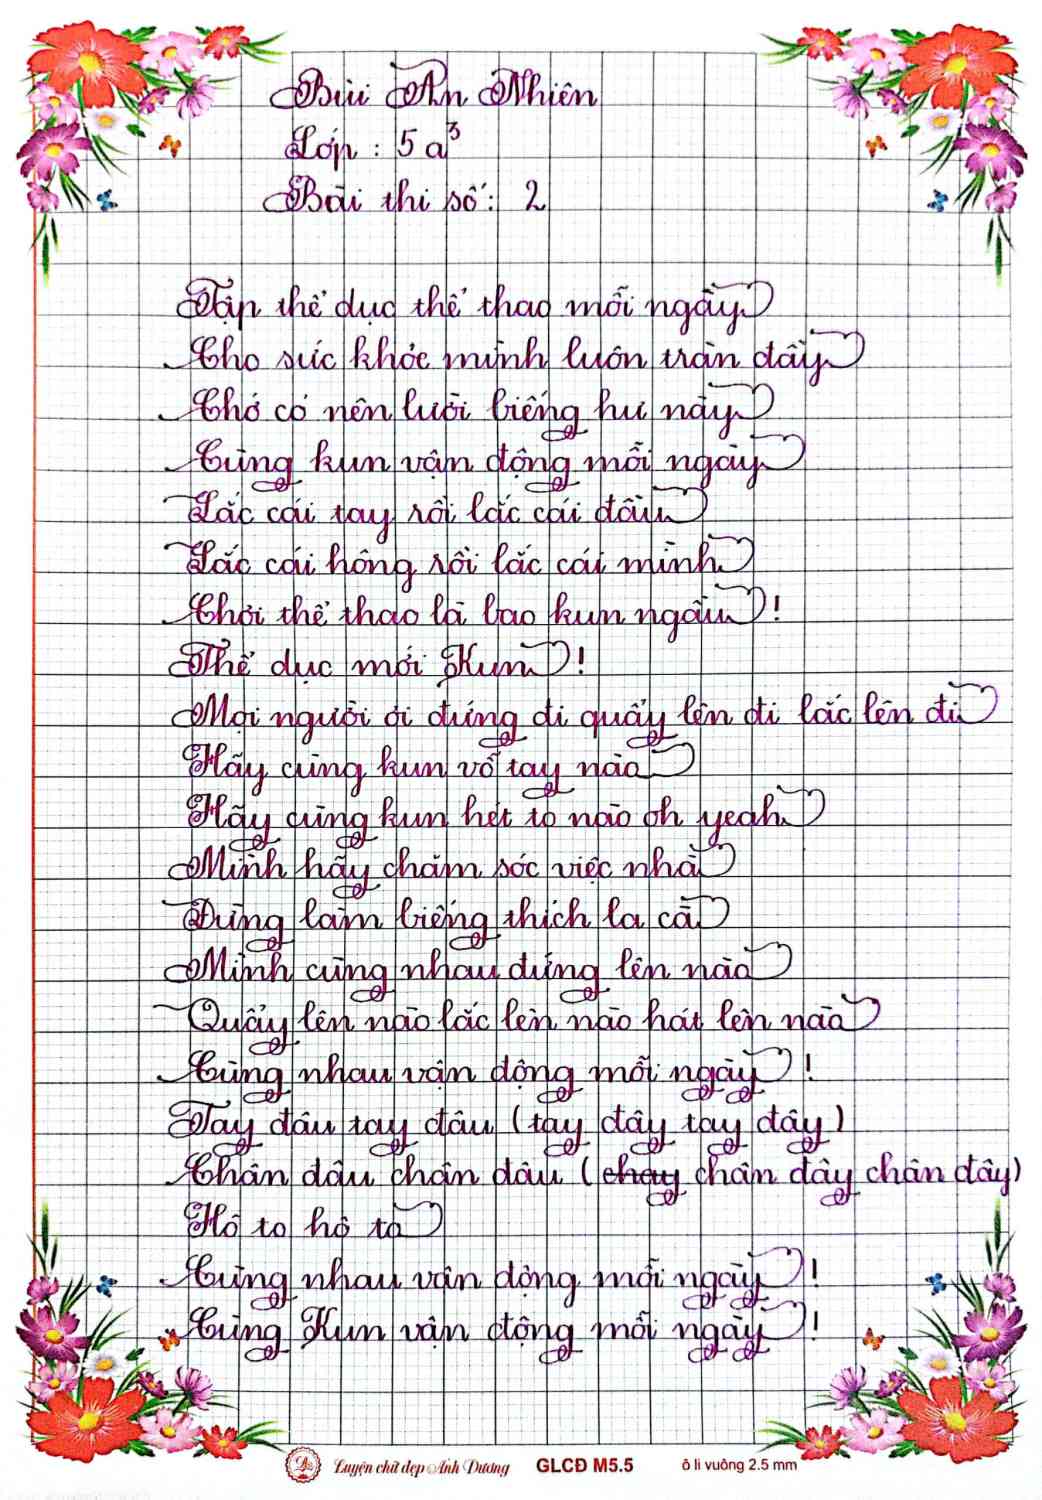 Bùi An Nhiên
Lớp : 5a³
Bài thi số: 2
Tập thể dục thể thao mỗi ngày
Cho sức khỏe mình luôn tràn đầy
Chớ có nên lười biếng hư này
Cùng kun vận động mỗi ngày
Lắc cái tay rồi lắc cái đầu
Lắc cái hông rồi lắc cái mình
Chơi thể thao là bao kun ngầu!
Thể dục mới Kun!
Mọi người ơi đứng đi quẩy lên đi lắc lên đi
Hãy cùng kun vỗ tay nào
Hãy cùng kun hét to nào oh yeah
Mình hãy chăm sóc việc nhà
Đừng làm biếng thích la cà
Mình cùng nhau đứng lên nào
Quẩy lên nào lắc lên nào hát lên nào
Cùng nhau vận động mỗi ngày!
Tay đâu tay đâu (tay đây tay đây)
Chân đâu chân đâu (chay chân đây chân đây)
Hô to hô to
Cùng nhau vận động mỗi ngày!
Cùng Kun vận động mỗi ngày!
Luyện chữ đẹp Ánh Dương GLCĐ M5.5 ô li vuông 2.5 mm